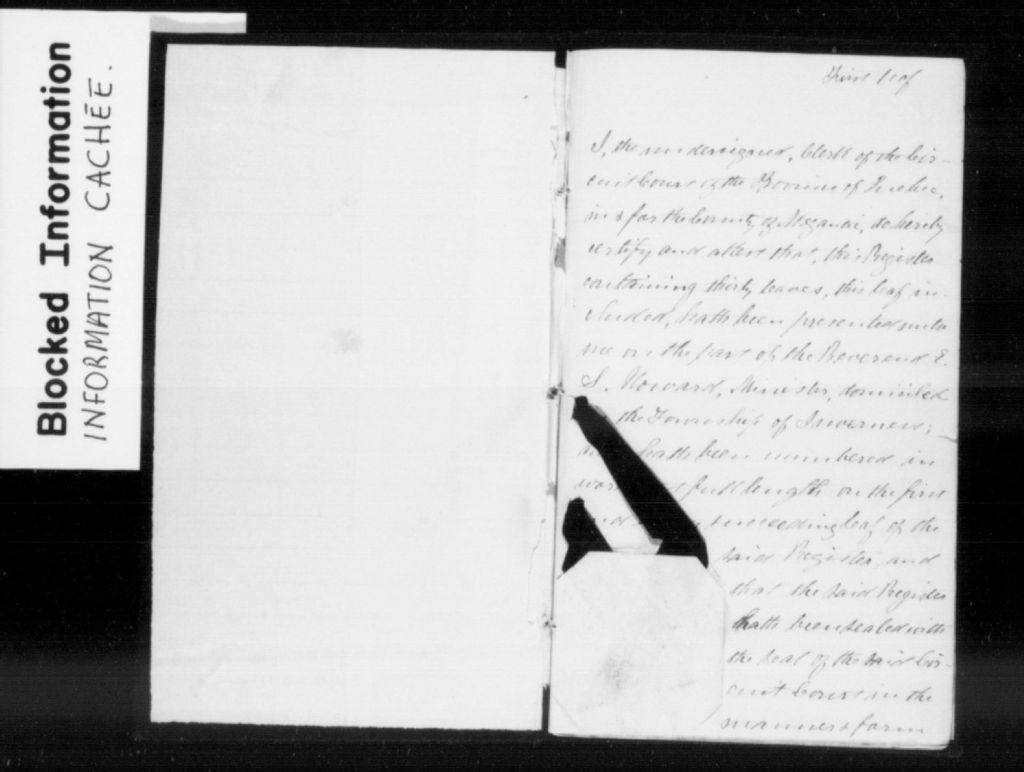 Blocked Information
INFORMATION CACHÉE.
First leaf
I, the undersigned, Clerk of the Cir-
cuit Court of the Province of Quebec,
in & for the County of Megantic, do hereby
certify and attest that, this Register
containing thirty leaves, this leaf in-
cluded, hath been presented unto
me on the part of the Reverend E.
S. Howard, Minister, domiciled
the Township of Inverness;
hath been numbered in
full length on the first
and succeeding leaf of the
said Register, and
that the said Register
hath been sealed with
the seal of the said Cir-
cuit Court in the
manner & form